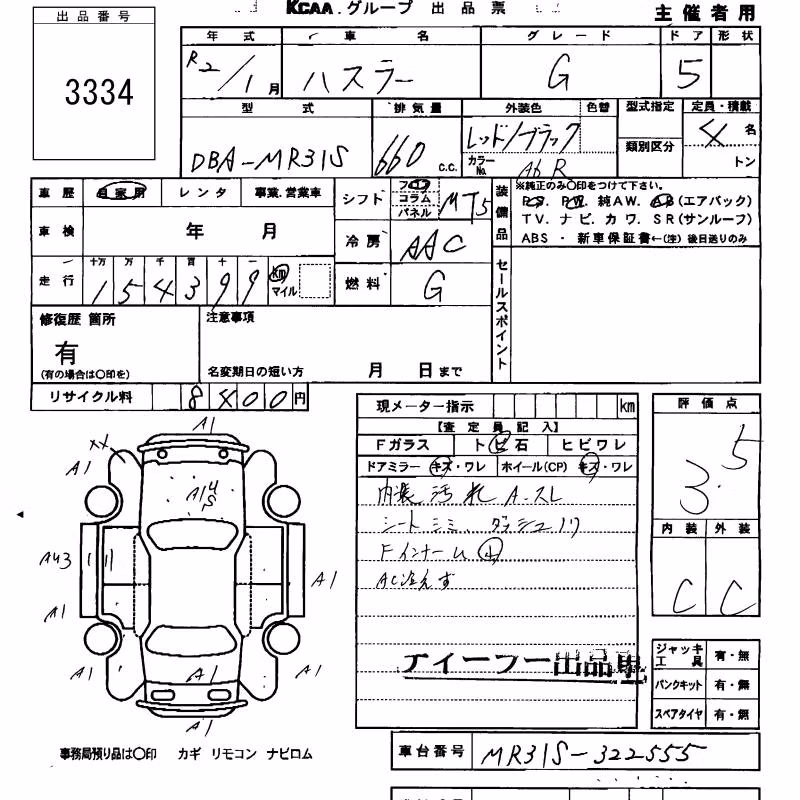 KCAA.グループ 出品票
主催者用
出品番号
3334
年式 車名 グレード ドア 形状
R2/1月 ハスラー G 5
型式 排気量 外装色 色替 型式指定 定員・積載
DBA-MR31S 660 c.c. レッド/ブラック カラーNo. 類別区分 4名
トン
車歴 自家用 レンタ 事業.営業車
シフト フロア コラム パネル MT5
装備品 ※純正のみ〇印をつけて下さい。
PS. PW. 純AW. AB(エアバック)
TV. ナビ. カワ. SR(サンルーフ)
ABS ・ 新車保証書←(注) 後日送りのみ
車検 年 月
冷房 AAC
走行 十万 万 千 百 十 一
154399 km マイル
燃料 G
セールスポイント
修復歴 箇所
有
(有の場合は〇印を)
注意事項
名変期日の短い方 月 日まで
リサイクル料 8400円
現メーター指示 km
【査定員記入】
Fガラス トビ石 ヒビワレ
ドアミラー キズ・ワレ ホイール(CP) キズ・ワレ
内装汚れ A・スレ
シートシミ、ダッシュノリ
Fインナーム小
AC冷えず
アイーフー出品車
評価点
3.5
内装 外装
C C
ジャッキ工具 有・無
パンクキット 有・無
スペアタイヤ 有・無
A1
XX
A1
A1
A43
A1
A1
A1
A1
A1
A1
事務局預り品は〇印 カギ リモコン ナビロム
車台番号 MR31S-322555